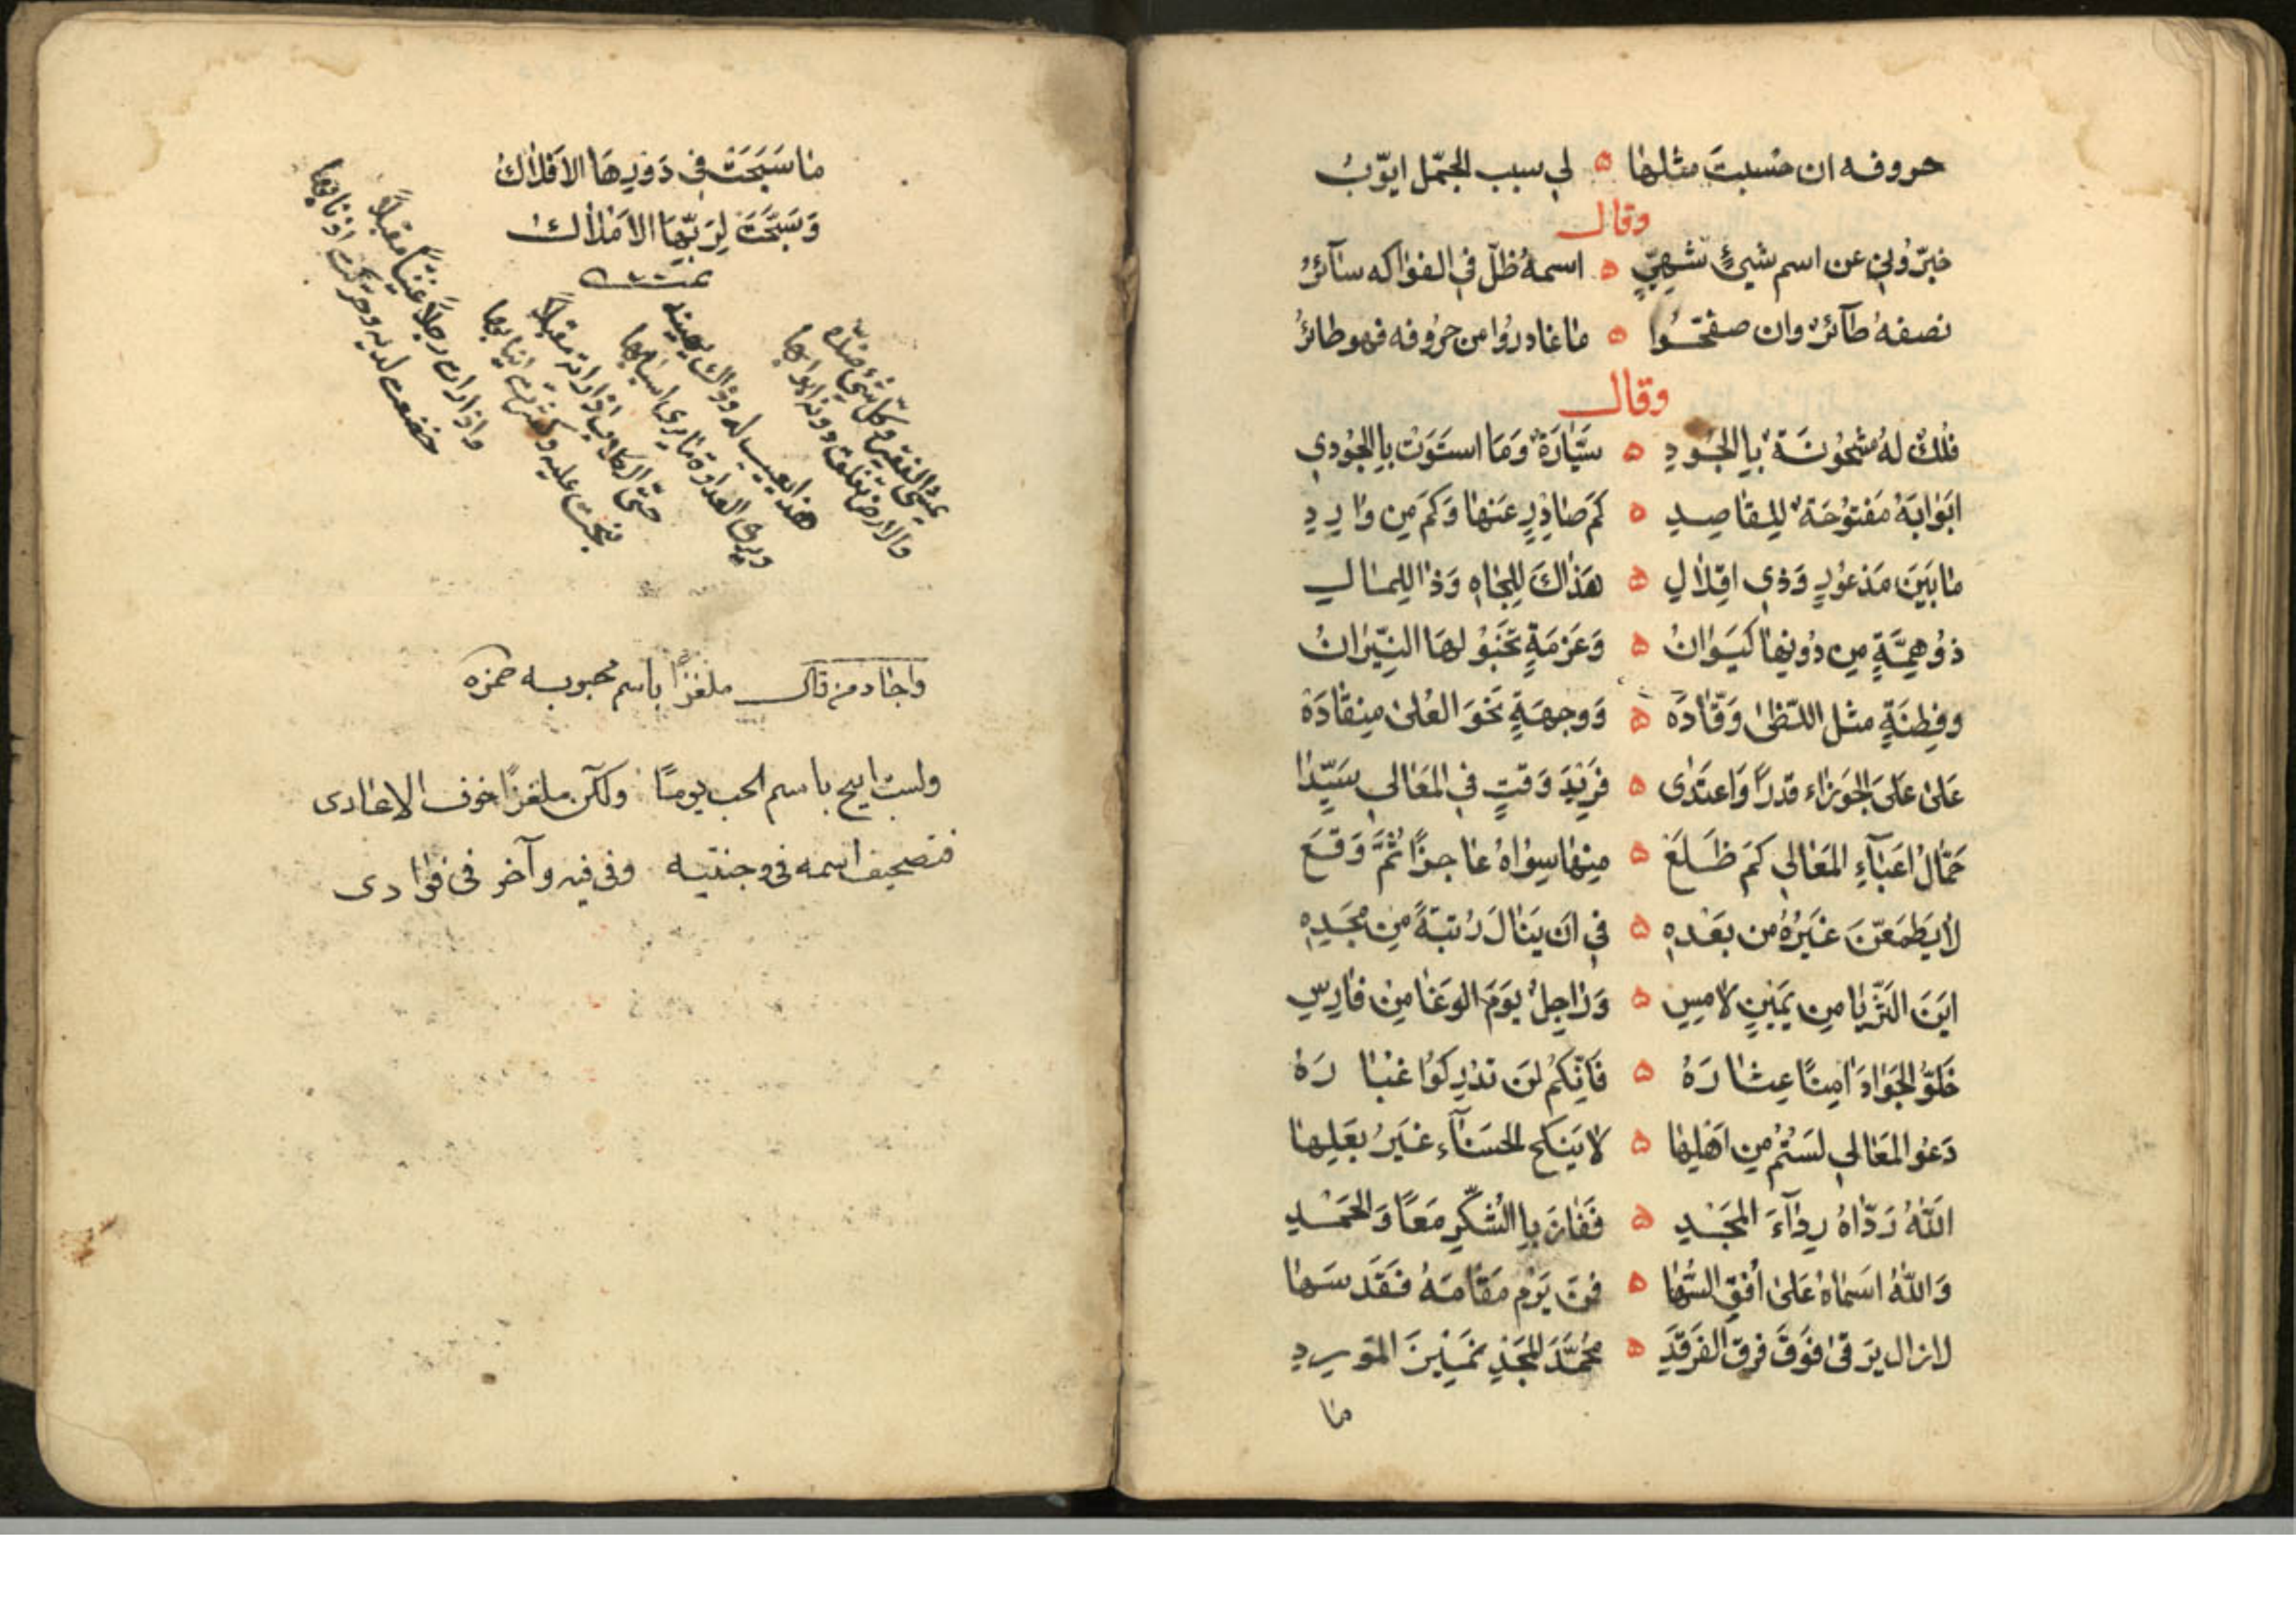 حروفه ان حسبتَ مثلها ۵ لي سبب الجمّل ايّوبُ
وقال
خبرّوني عن اسم شيئٍ شهيٍّ ۵ اسمهُ ظلّ في الفواكه سآئرُ
نصفهُ طآئرٌ وان صفحّوا ۵ ما غادروا من حروفه فهو طائرُ
وقال
فُلكٌ لهُ مشحُونَةٌ باِالجُودِ ۵ سَيَّارَةٌ وَمَا استَوَتْ باِالجُودي
ابَوابَهُ مَفتوُحَةٌ لِلقاصِدِ ۵ كَم صَادِرٍ عَنها وَكَم مِن وَارِدِ
ما بَينَ مَذعوُرٍ وَذي اقِلالِ ۵ هَذاكَ لِلجاهِ وَذا لِلمالِ
ذوُ همَّةٍ مِن دُونِها كَيَوانُ ۵ وَعَزمَةٍ تَخبَوُ لهَا النيّرانُ
وفِطِنَةٍ مثل اللّظىٰ وَقّادَه ۵ وَوجهَةٍ نَحوَ العُلىٰ مِنقادَهْ
عَلىٰ عَلىَ الجَوزاء قدرًا وَاعتَدىٰ ۵ فَريَدَ وَقتٍ في المَعالي سَيّدا
حَمّالُ اعَبآءِ المَعَالي كَم ظَلَعَ ۵ مِنها سِواهُ عاجزًا ثُمَّ وَقَعَ
لا يَطمَعَنّ غَيَرُهُ من بَعَدهِ ۵ في ان يَنالَ رُتبَةً مِن مجَدِهِ
ايَنَ الثَرّيا مِن يَمينِ لامِسِ ۵ وَرَاجِلٌ يوَمَ الوغَا مِن فارِسِ
خَلوُّ الجَوادَ امِنًا عِثارَهُ ۵ فَانِّكُم لَن تدرِكوُا غبارَهُ
دَعوُ المَعالي لَسَتُم مِن اَهلِها ۵ لا يَنكح الحسَناَء غَيَرُ بعَلِها
اللّهُ رَدّاهُ رِداَءَ المجَدِ ۵ فَفَازَ باِالشُكّرِ مَعًا وَالحَمَدِ
وَاللّهُ اسَماهُ عَلىٰ اُفقِ السُها ۵ فَمَن يَرُم مَقامَهُ فَقَد سَها
لازال يرَقىٰ فوَقَ فرق الفَرقَدِ ۵ محُمَّدَ المجَدِ نمَيرَ المَورِدِ
ما
ما سَبَحَت في دَورِهَا الافَلاكُ
وَسَبَّحَت لِرَبّهَا الاَملاكُ
تمت
يمشى الفقير وكل شئ ضدّه
والارض تغلق دونه ابوابها
هذا يعيب له وذاك يهينه
ويرى العداوة لا يرى اسبابها
حتى الكلاب اذا راته مقبلاً
نبحت عليه وكشرت انيابها
واذا رات رجلاً غنيًا مقبلاً
خضعت لديه وحركت اذنابها
واجاد من قال ملغزًا باسم محبوبه حمزه
ولست ابيح باسم الحب يومًا ولكن ملغزًا خوف الاعادى
فتصحيف اسمه فى وجنتيه وفى فيه وآخر فى فؤادى